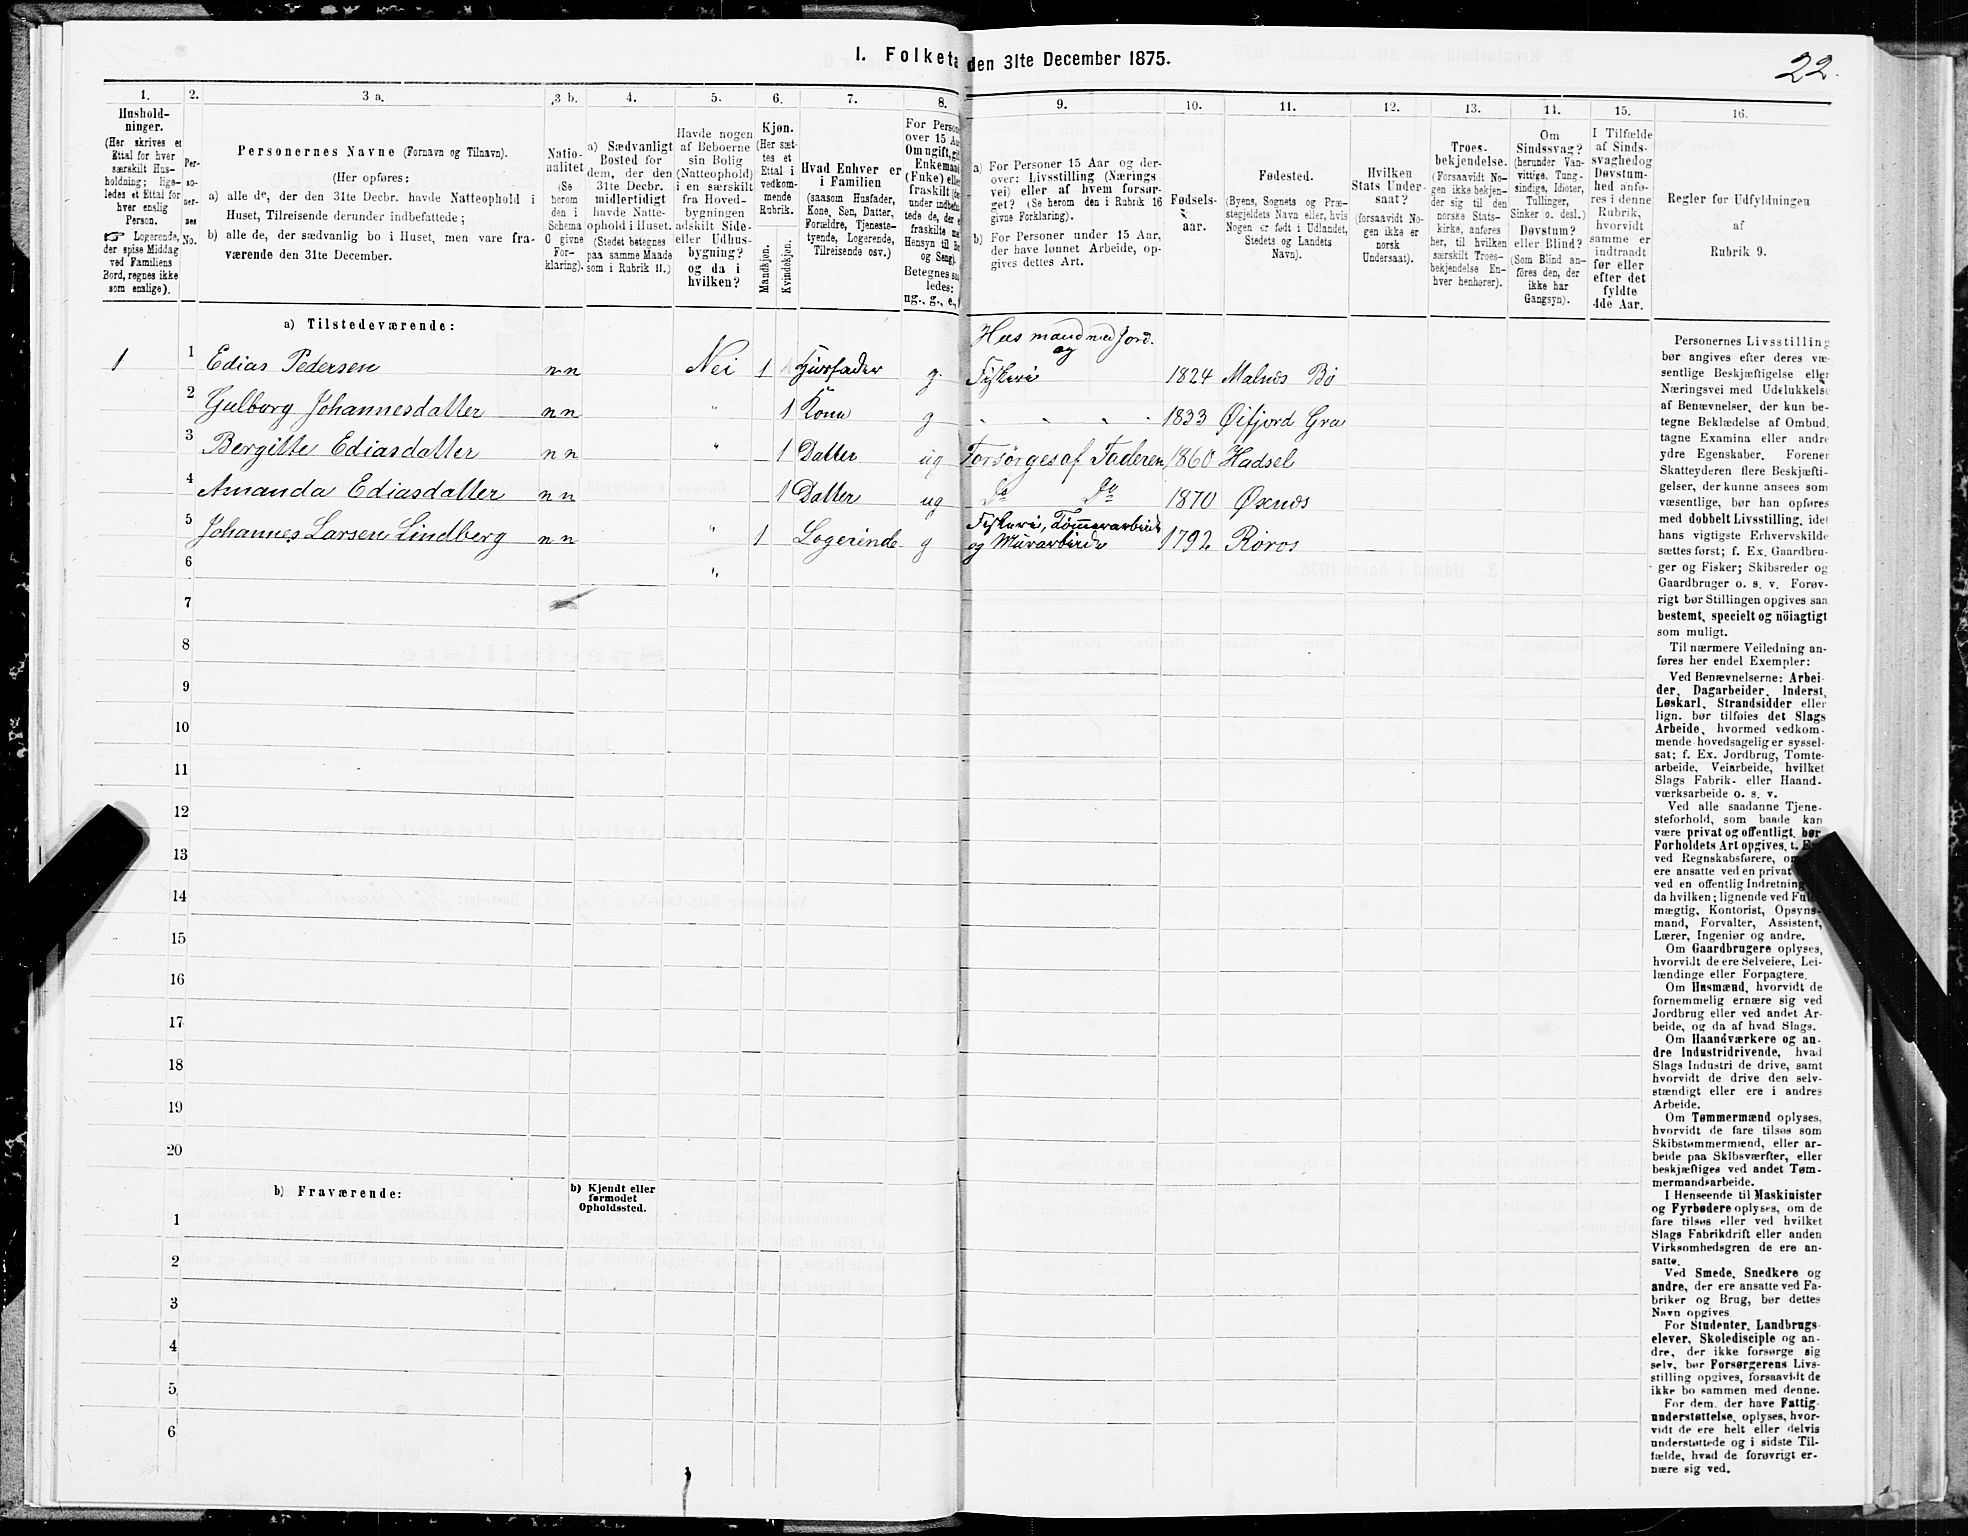 I. Folketa den 31te December 1875.
22.
1.
Hushold-
ninger.
(Her skrives et
Ettal for hver
særskilt Hus-
holdning; lige-
ledes et Ettal for
hver enslig
Person.
☞ Logerende,
der spise Middag
ved Familiens
Bord, regnes ikke
som enslige).
2.
Per-
so-
ner-
nes
No.
3 a.
Personernes Navne (Fornavn og Tilnavn).
(Her opføres:
a) alle de, der den 31te Decbr. havde Natteophold i
Huset, Tilreisende derunder indbefattede;
b) alle de, der sædvanlig bo i Huset, men vare fra-
værende den 31te December.
3 b.
Natio-
nalitet
(Se
herom
den i
Schema
0 givne
For-
klaring).
4.
a) Sædvanligt
Bosted for
dem, der den
31te Decbr.
midlertidigt
havde Natte-
ophold i Huset.
(Stedet betegnes
paa samme Maade
som i Rubrik 11.)
5.
Havde nogen
af Beboerne
sin Bolig
(Natteophold)
i en særskilt
fra Hoved-
bygningen
adskilt Side-
eller Udhus-
bygning?
og da i
hvilken?
6.
Kjøn.
(Her sæt-
tes et
Ettal i
vedkom-
mende
Rubrik.
Mandkjøn.
Kvindekjøn.
7.
Hvad Enhver er
i Familien
(saasom Husfader,
Kone, Søn, Datter,
Forældre, Tjeneste-
tyende, Logerende,
Tilreisende osv.)
8.
For Person
over 15 Aa
Om ugift, gif
Enkemand
(Enke) eller
fraskilt (der
under indbefat-
tede de, der e
fraskilte me
Hensyn til Bo
og Seng).
Betegnes saa
ledes:
ug., g., e., f
9.
a) For Personer 15 Aar og der-
over: Livsstilling (Nærings
vei) eller af hvem forsør-
get? (Se herom den i Rubrik 16
givne Forklaring).
b) For Personer under 15 Aar,
der have lønnet Arbeide, op-
gives dettes Art.
10.
Fødsels-
aar.
11.
Fødested.
(Byens, Sognets og Præ-
stegjeldets Navn eller, hvis
Nogen er født i Udlandet,
Stedets og Landets
Navn).
12.
Hvilken
Stats Under-
saat?
(forsaavidt No-
gen ikke er
norsk
Undersaat).
13.
Troes-
bekjendelse.
(Forsaavidt No-
gen ikke bekjen-
der sig til den
norske Stats-
kirke, anføres
her, til hvilken
særskilt Troes-
bekjendelse En-
hver henhører).
14.
Om
Sindssvag?
(herunder Van-
vittige, Tung-
sindige, Idioter,
Tullinger,
Sinker o. desl.)
Døvstum?
eller Blind?
(Som Blind an-
føres den, der
ikke har
Gangsyn).
15.
I Tilfælde
af Sinds-
svaghed og
Døvstum-
hed anfø-
res i denne
Rubrik,
hvorvidt
samme er
indtraadt
før eller
efter det
fyldte
4de Aar.
16.
Regler for Udfyldningen
af
Rubrik 9.
a) Tilstedeværende:
1 1 Edias Pedersen n n Nei 1 Husfader g. Huusmand med Jord. og Fiskeri 1824 Malnes Bø
2 Gulborg Johannesdatter n n " 1 Kone g 1833 Øifjord Gra
3 Bergitte Ediasdatter n n " 1 Datter ug Forsørges af Faderen 1860 Hadsel
4 Amanda Ediasdatter n n 1 Datter ug Do Do 1870 Øxnes
5 Johannes Larsen Lindberg n n " 1 Logerende g Fiskeri, Tømmerarbeide og Murarbeide 1792 Røros
6 "
7
8
9
10
11
12
13
14
15
16
17
18
19
20
b) Fraværende:
b) Kjendt eller
formodet
Opholdssted.
1
2
3
4
5
6
Personernes Livsstilling
bør angives efter deres væ-
sentlige Beskjæftigelse eller
Næringsvei med Udelukkelse
af Benævnelser, der kun be-
tegne Beklædelse af Ombud,
tagne Examina eller andre
ydre Egenskaber. Forener
Skatteyderen flere Beskjæfti-
gelser, der kunne ansees som
væsentlige, bør han opføres
med dobbelt Livsstilling, idet
hans vigtigste Erhvervskilde
sættes først; f. Ex. Gaardbru-
ger og Fisker; Skibsreder og
Gaardbruger o. s. v. Forøv-
rigt bør Stillingen opgives saa
bestemt, specielt og nöiagtigt
som muligt.
Til nærmere Veiledning an-
føres her endel Exempler:
Ved Benævnelserne: Arbei-
der, Dagarbeider, Inderst,
Løskarl, Strandsidder eller
lign. bør tilføies det Slags
Arbeide, hvormed vedkom-
mende hovedsagelig er syssel-
sat; f. Ex. Jordbrug, Tomte-
arbeide, Veiarbeide, hvilket
Slags Fabrik- eller Haand-
værksarbeide o. s. v.
Ved alle saadanne Tjene-
steforhold, som baade kan
være privat og offentligt, bør
Forholdets Art opgives, t. E
ved Regnskabsførere, o
ere ansatte ved en privat
ved en offentlig Indretning
da hvilken; lignende ved Ful
mægtig, Kontorist, Opsyns-
mand, Forvalter, Assistent,
Lærer, Ingeniør og andre.
Om Gaardbrugere oplyses,
hvorvidt de ere Selveiere, Lei-
lændinge eller Forpagtere.
Om Husmænd, hvorvidt de
fornemmelig ernære sig ved
Jordbrug eller ved andet Ar-
beide, og da af hvad Slags.
Om Haandværkere og an-
dre Industridrivende, hvad
Slags Industri de drive, samt
hvorvidt de drive den selv-
stændigt eller ere i andres
Arbeide.
Om Tømmermænd oplyses,
hvorvidt de fare tilsøs som
Skibstømmermænd, eller ar-
beide paa Skibsværfter, eller
beskjæftiges ved andet Tøm-
mermandsarbeide.
I Henseende til Maskinister
og Fyrbødere oplyses, om de
fare tilsøs eller ved hvilket
Slags Fabrikdrift eller anden
Virksomhedsgren de ere an-
satte.
Ved Smede, Snedkere og
andre, der ere ansatte ved Fa-
briker og Brug, bør dettes
Navn opgives
For Studenter, Landbrugs-
elever, Skoledisciple og an-
dre, der ikke forsørge sig
selv, bør Forsørgerens Livs-
stilling opgives, forsaavidt de
ikke bo sammen med denne.
For dem, der have Fattig-
understøttelse, oplyses, hvor-
vidt de ere helt eller delvis
understøttede og i sidste Til-
fælde, hvad de forøvrigt er-
nære sig ved.